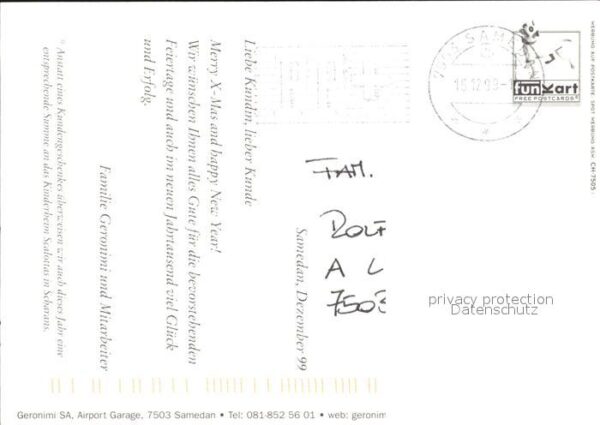 Liebe Kundin, lieber Kunde
Merry X-Mas and happy New Year!
Wir wünschen Ihnen alles Gute für die bevorstehenden
Feiertage und auch im neuen Jahrtausend viel Glück
und Erfolg.
Samedan, Dezember 99
Familie Geronimi und Mitarbeiter
Anstatt eines Kundengeschenkes überweisen wir auch dieses Jahr eine
entsprechende Summe an das Kinderheim Scalottas in Scharans.
7503 SAMEDAN
15.12.99
funKart
FREE POSTCARDS
WERBUNG AUF POSTKARTE SPOT WERBUNG ASW CH-7505
FAM.
ROLF
A L
7503
privacy protection
Datenschutz
Geronimi SA, Airport Garage, 7503 Samedan • Tel: 081-852 56 01 • web: geronim